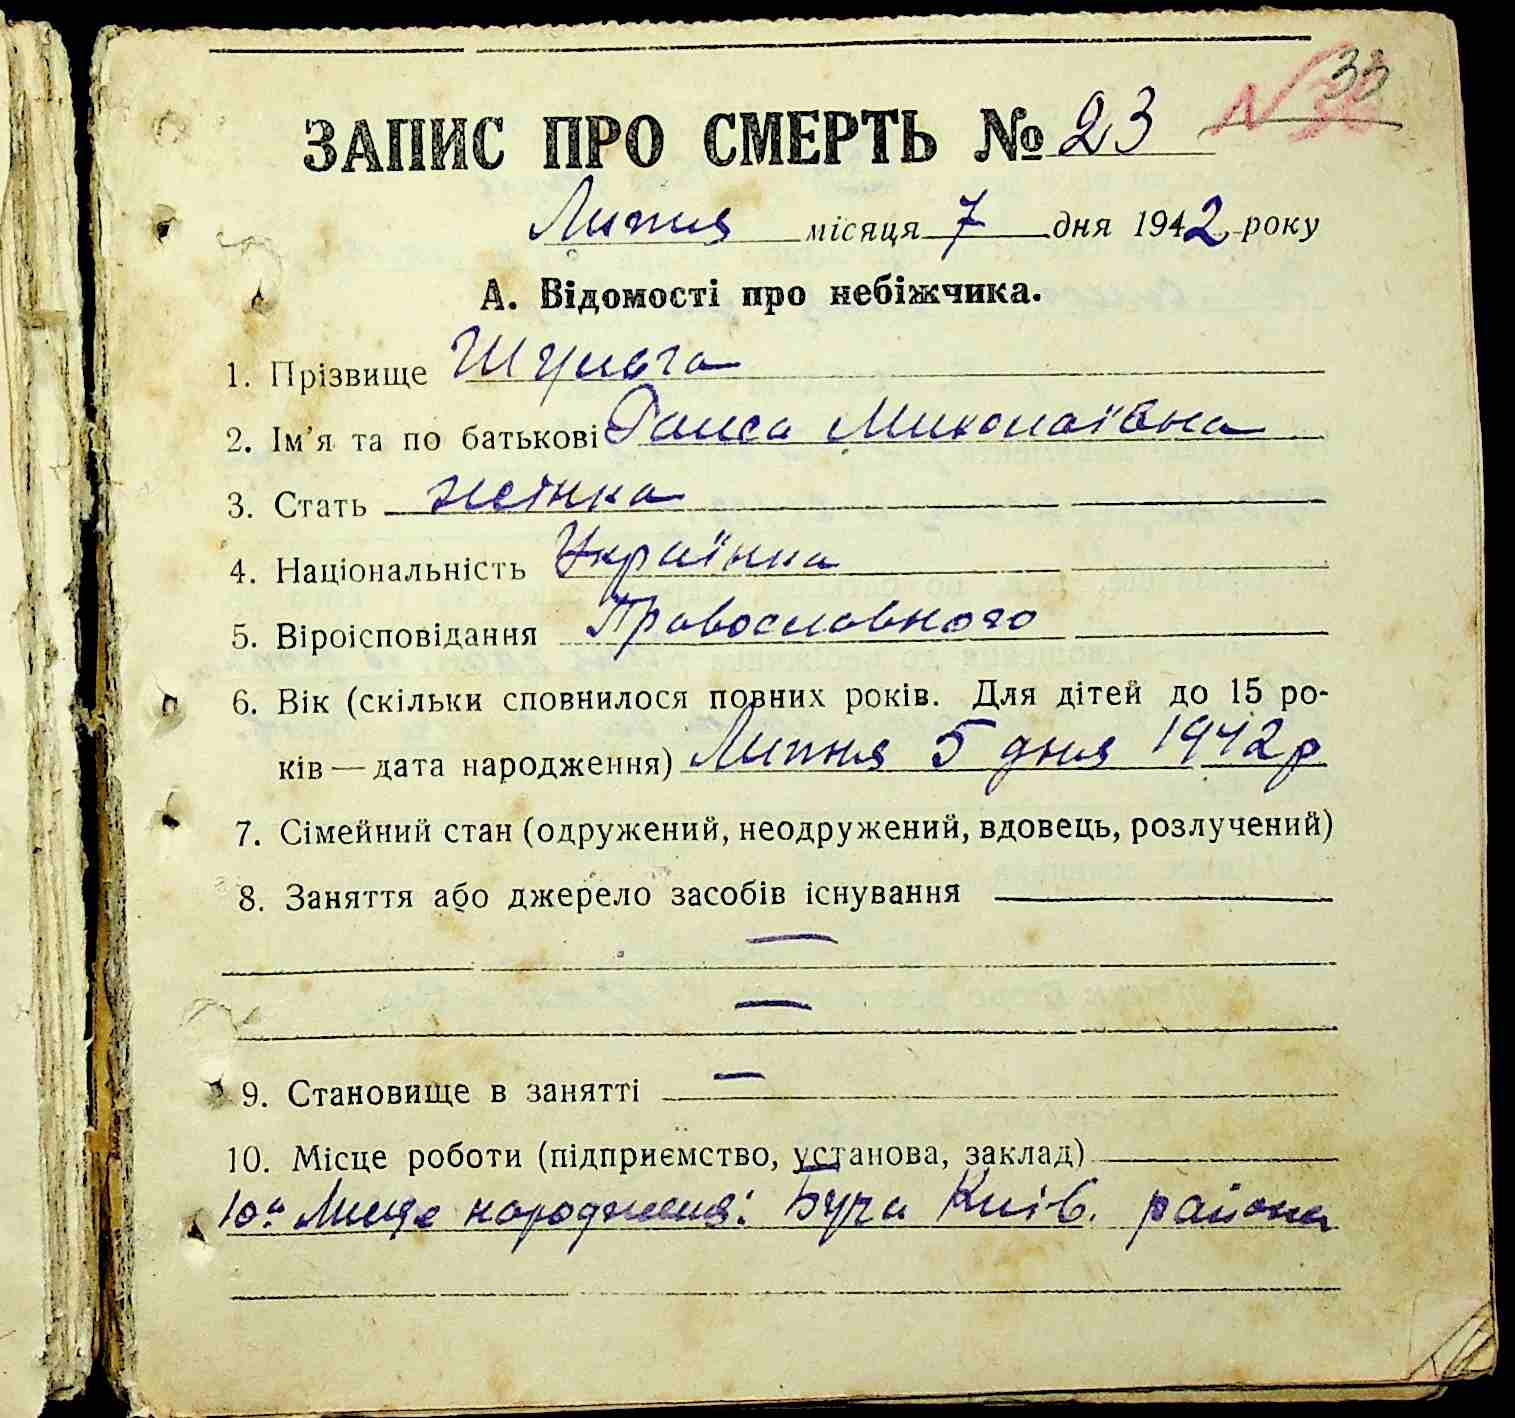 33
ЗАПИС ПРО СМЕРТЬ № 23
Липня місяця 7 дня 1942 року
А. Відомості про небіжчика.
1. Прізвище Шульга
2. Ім'я та по батькові Раиса Миколаївна
3. Стать жетнка
4. Національність Українка
5. Віроісповідання Православного
6. Вік (скільки сповнилося повних років. Для дітей до 15 ро-
ків — дата народження) Липня 5 дня 1942 р
7. Сімейний стан (одружений, неодружений, вдовець, розлучений)
8. Заняття або джерело засобів існування
—
—
9. Становище в занятті —
10. Місце роботи (підприємство, установа, заклад)
10а Мисце народження: Буча Киів. района